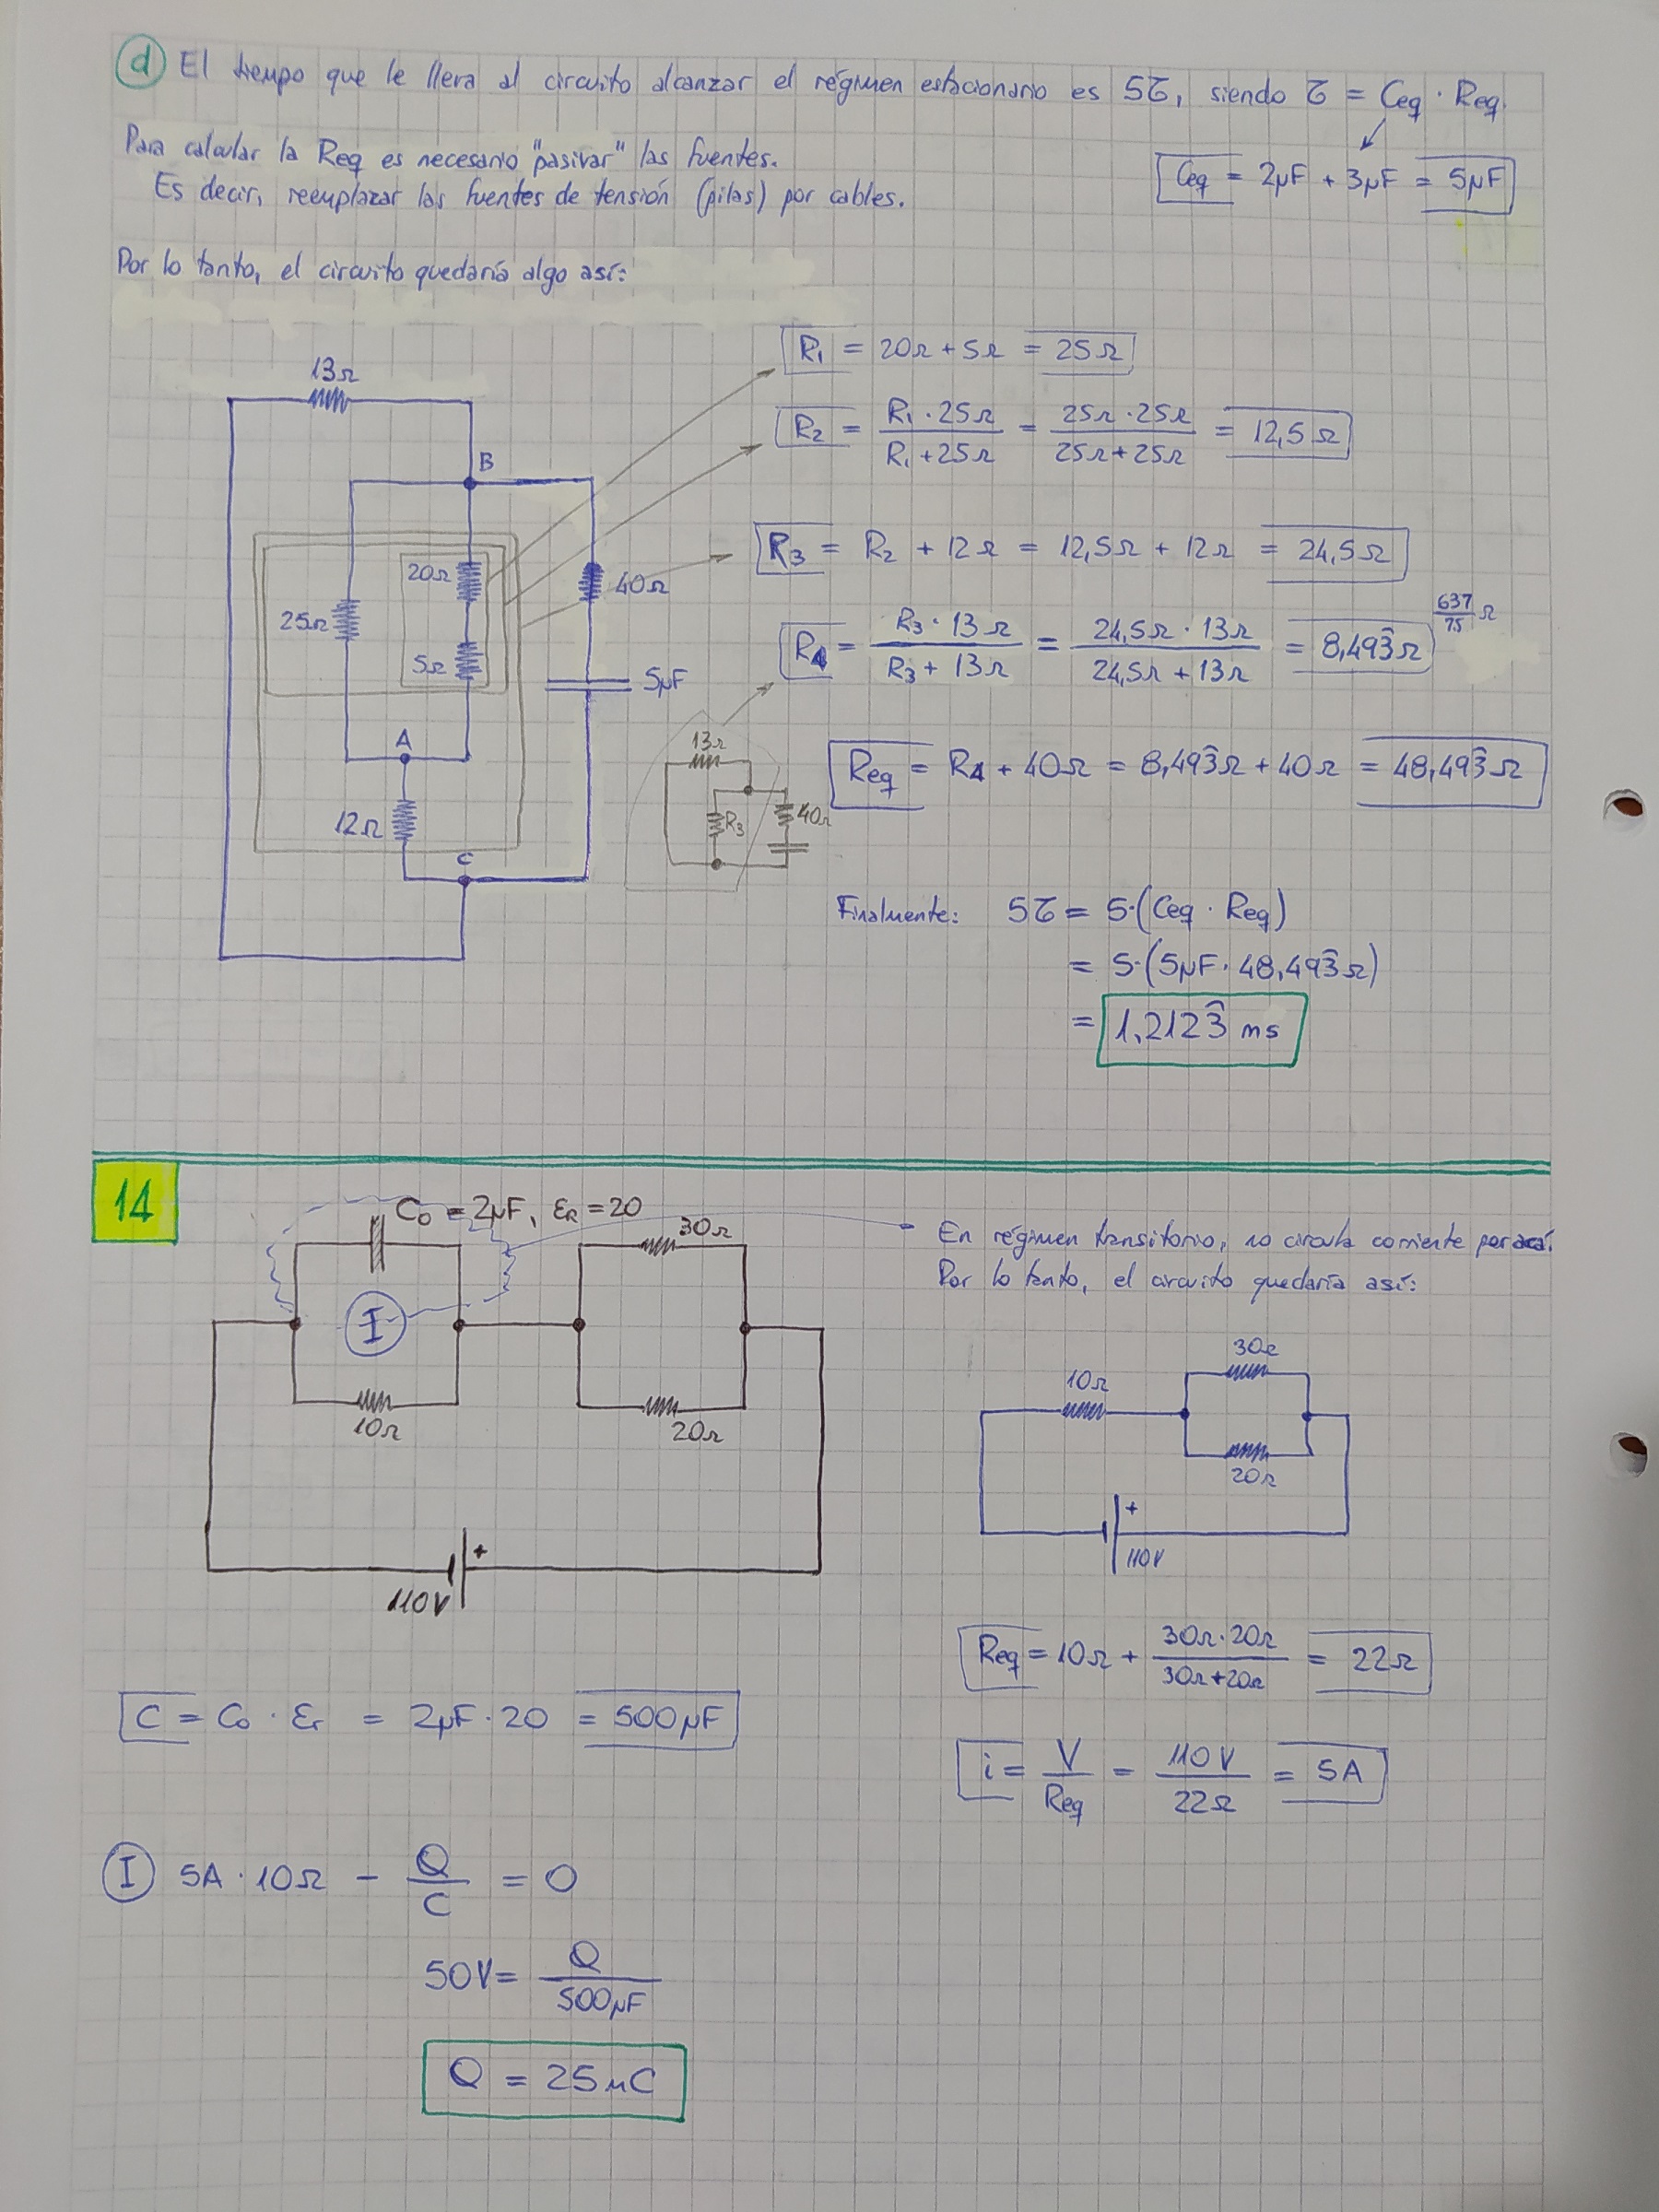 d El tiempo que le lleva al circuito alcanzar el régimen estacionario es 5τ, siendo τ = Ceq · Req.
Para calcular la Req es necesario "pasivar" las fuentes.
Es decir, reemplazar las fuentes de tensión (pilas) por cables.
Ceq = 2μF + 3μF = 5μF
Por lo tanto, el circuito quedaría algo así:
R1 = 20Ω + 5Ω = 25Ω
R2 = R1 · 25Ω / R1 + 25Ω = 25Ω · 25Ω / 25Ω + 25Ω = 12,5Ω
R3 = R2 + 12Ω = 12,5Ω + 12Ω = 24,5Ω
R4 = R3 · 13Ω / R3 + 13Ω = 24,5Ω · 13Ω / 24,5Ω + 13Ω = 8,493̂Ω
637/75 Ω
Req = R4 + 40Ω = 8,493̂Ω + 40Ω = 48,493̂Ω
13Ω
B
20Ω
40Ω
25Ω
5Ω
5μF
A
12Ω
C
13Ω
R3
40Ω
Finalmente: 5τ = 5·(Ceq · Req)
= 5·(5μF · 48,493̂Ω)
= 1,2123̂ ms
14
C0 = 2μF, εR = 20
30Ω
I
10Ω
20Ω
110V
+
En régimen transitorio, no circula corriente por acá.
Por lo tanto, el circuito quedaría así:
30Ω
10Ω
20Ω
+
110V
Req = 10Ω + 30Ω·20Ω / 30Ω+20Ω = 22Ω
C = C0 · εr = 2μF · 20 = 500μF
i = V / Req = 110V / 22Ω = 5A
I 5A · 10Ω - Q / C = 0
50V = Q / 500μF
Q = 25mC